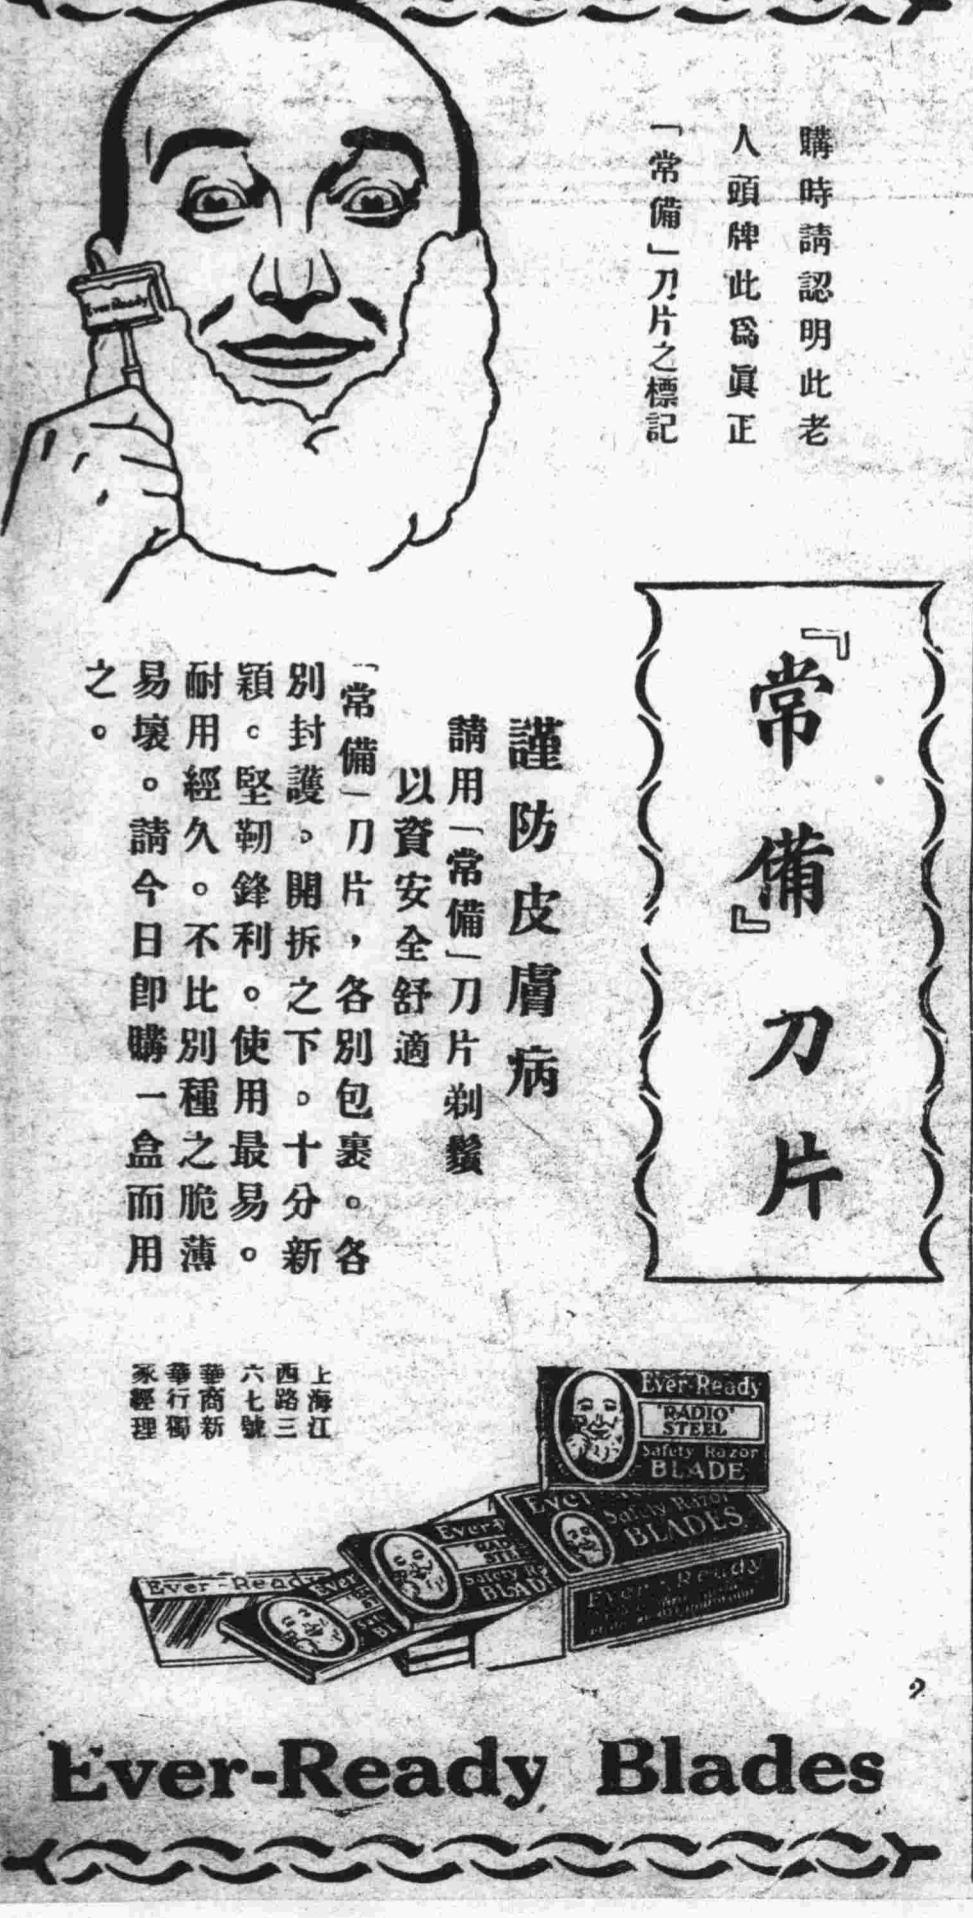 購時請認明此老
人頭牌此爲眞正
「常備」刀片之標記
Ever-Ready
『常備』刀片
謹防皮膚病
請用「常備」刀片剃鬚
以資安全舒適
「常備」刀片，各別包裹。各
別封護。開拆之下。十分新
穎。堅韌鋒利。使用最易。
耐用經久。不比別種之脆薄
易壞。請今日卽購一盒而用
之。
上海江
西路三
六七號
華商新
華行獨
家經理
Ever-Ready
'RADIO'
STEEL
Safety Razor
BLADE
Ever
Safety Razor
BLADES
Ever-Ready
Ever-R
RAD
STE
Safety Ra
BLAD
Ever
Ever-Ready
2
Ever-Ready Blades